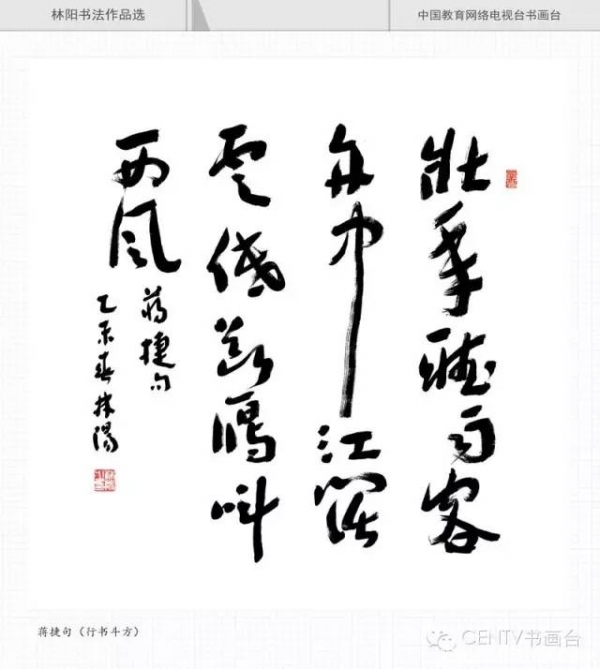 林阳书法作品选
中国教育网络电视台书画台
壯年聽雨客
舟中江闊
雲低斷鴈叫
西風
蔣捷句
乙未春林陽
蒋捷句（行书斗方）
CENTV书画台